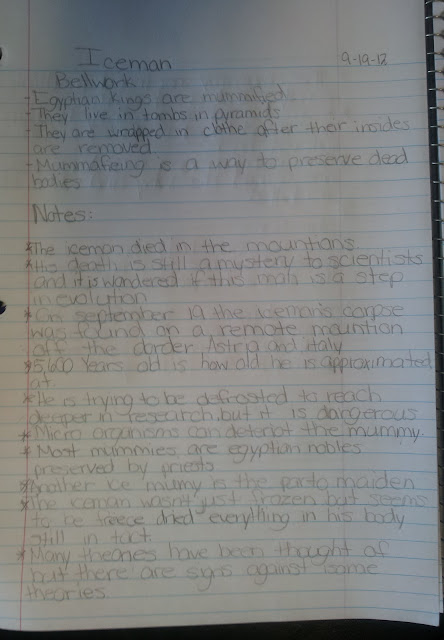 Iceman
9-19-12
Bellwork
- Egyptian kings are mummified
- They live in tombs in pyramids
- They are wrapped in clothe after their insides
are removed
- Mummafieing is a way to preserve dead
bodies
Notes:
*The iceman died in the mountians
*His death is still a mystery to scientists
and it is wandered if this man is a step
in evolution
*On september 19 the Iceman's corpse
was found on a remote mountion
off the dorder Astria and italy
*5,600 Years old is how old he is approximated
at
*He is trying to be defrosted to reach
deeper in research, but it is dangerous
*Micro organisms can deteriot the mummy.
* Most mummies are egyptian nobles
preserved by priests
*Another ice mumy is the parda maiden
*The iceman wasnt just frozen but seems
to be freece dried everything in his body
still in tact
*Many theories have been thought of
but there are signs against some
theories.